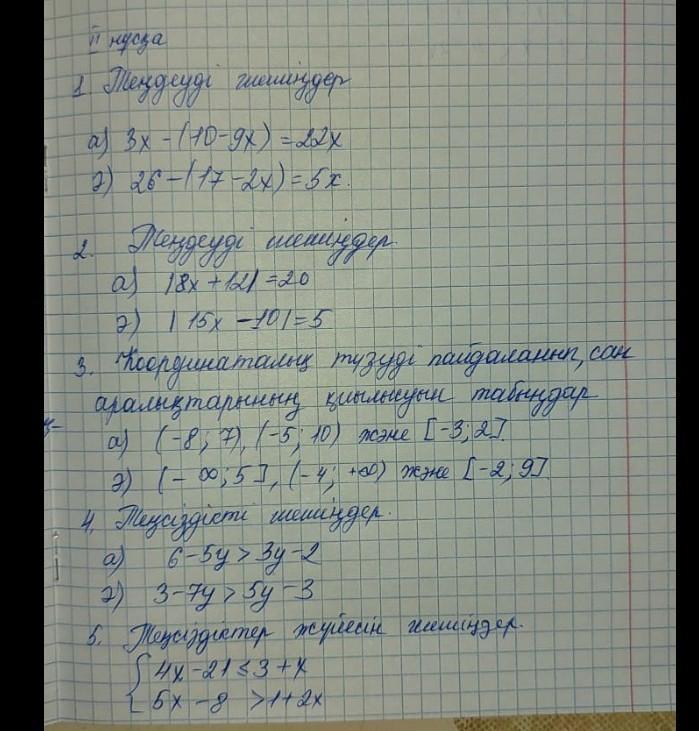 II нұсқа
1 Теңдеуді шешіңдер
а) 3x - (10 - 9x) = 22x
ә) 26 - (17 - 2x) = 5x.
2. Теңдеуді шешіңдер.
а) |8x + 12| = 20
ә) |15x - 10| = 5
3. Координаталық түзуді пайдаланып, сан
аралықтарының қиылысуын табыңдар
а) (-8; 7), (-5; 10) және [-3; 2].
ә) (-∞; 5], (-4; +∞) және [-2; 9]
4. Теңсіздікті шешіңдер.
а) 6 - 5y > 3y - 2
ә) 3 - 7y > 5y - 3
5. Теңсіздіктер жүйесін шешіңдер.
{ 4x - 21 ≤ 3 + x
5x - 8 > 1 + 2x